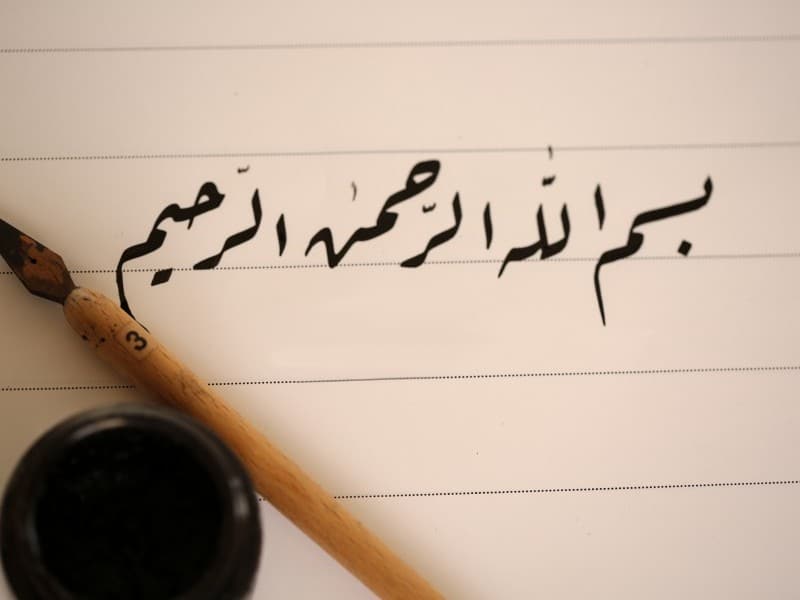 بسم الله الرّحمٰن الرّحيم
3